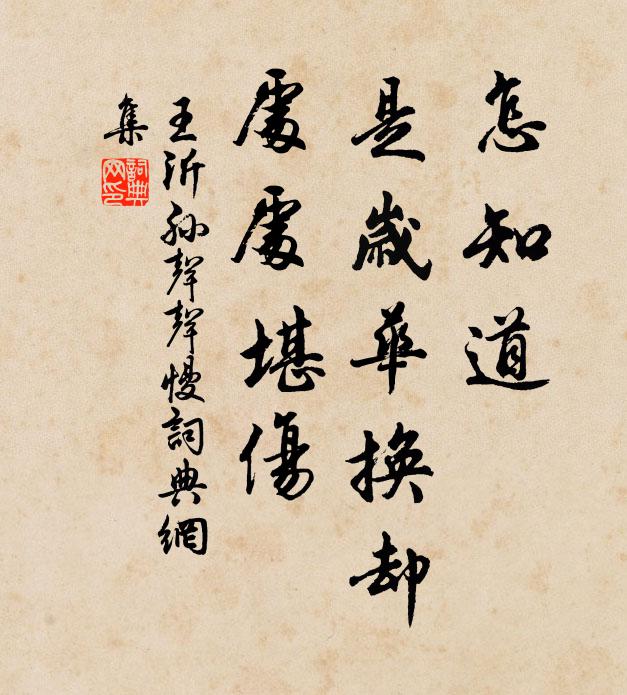 怎知道
是歲華換却
處處堪傷
王沂孙聲聲慢詞典網
集
詞典
网印